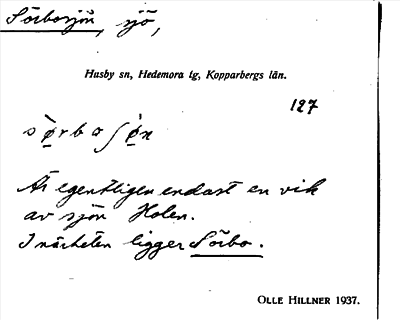 Sörbosjön, sjö,
Husby sn, Hedemora lg, Kopparbergs län.
127
Är egentligen endast en vik
av sjön Holen.
I närheten ligger Sörbo.
OLLE HILLNER 1937.